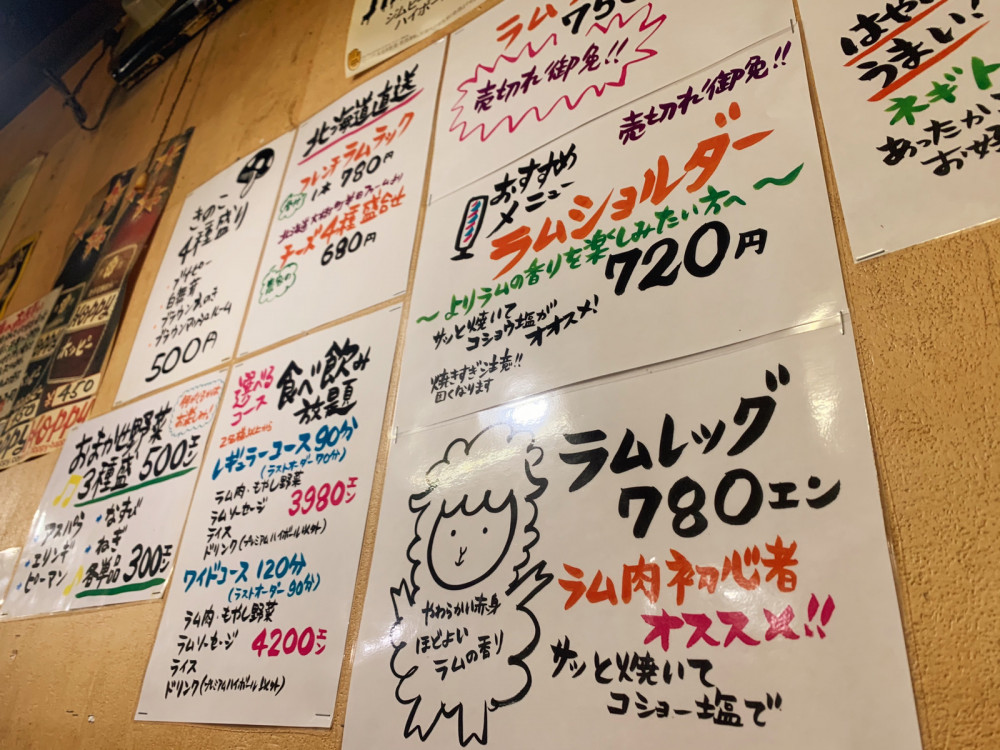 きのこ
4種盛り
・ブナピー
・白舞茸
・ブラウンえのき
・ブラウンマッシュルーム
500円
北海道直送
フレンチラムラック
1本 780円
チーズ4種盛合せ
680円
ラム
750
売切れ御免!!
売切れ御免!!
おすすめ
メニュー
ラムショルダー
〜よりラムの香りを楽しみたい方へ〜
720円
サッと焼いて
コショウ塩が
オススメ!
焼きすぎ注意!!
固くなります
はや
うまい!
ネギト
あったかい
お好
おまかせ野菜
3種盛 500エン
・アスパラ
・エリンギ
・ピーマン
・なすび
・ねぎ
各単品 300エン
選べる
コース
食べ飲み
放題
2名様以上から
レギュラーコース90分
(ラストオーダー70分)
ラム肉・もやし野菜
ラムソーセージ
ライス
ドリンク(プレミアムハイボール以外)
3980エン
ワイドコース120分
(ラストオーダー90分)
ラム肉・もやし野菜
ラムソーセージ
ライス
ドリンク(プレミアムハイボール以外)
4200エン
ラムレッグ
780エン
ラム肉初心者
オススメ!!
サッと焼いて
コショー塩で
やわらかい赤身
ほどよい
ラムの香り
ホッピー
450
HOPPY